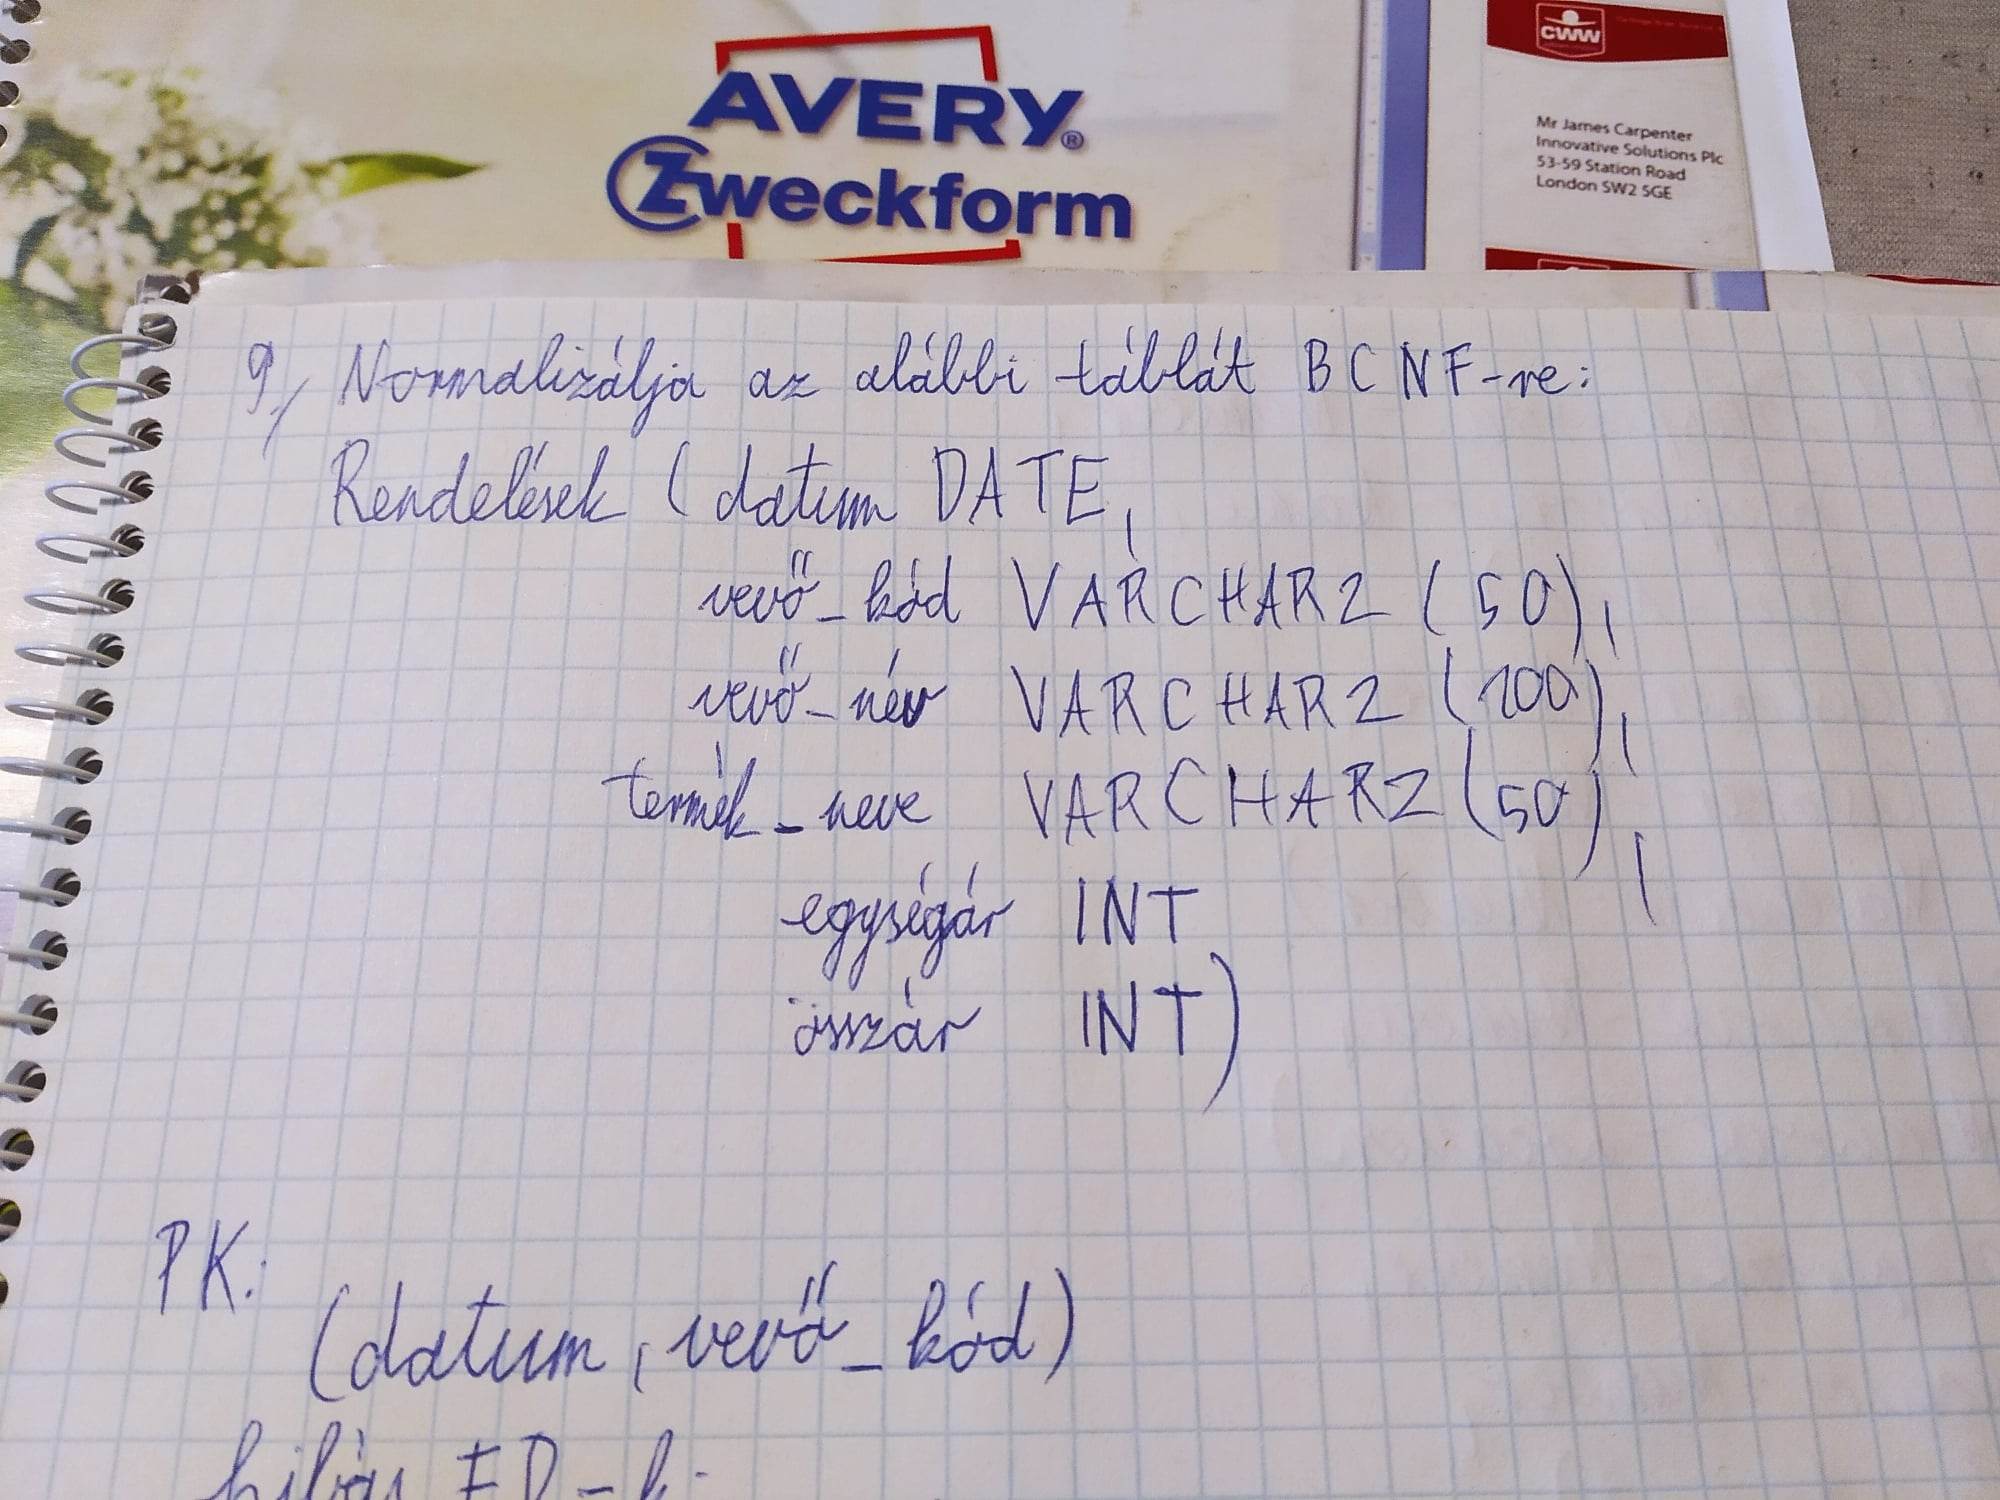 AVERY®
Zweckform
CWW
Mr James Carpenter
Innovative Solutions Plc
53-59 Station Road
London SW2 5GE
9, Normalizálja az alábbi táblát BCNF-re:
Rendelések (datum DATE,
vevő_kód VARCHAR2 (50),
vevő_név VARCHAR2 (200),
termék_neve VARCHAR2 (50),
egységár INT
összár INT)
PK:
(datum, vevő_kód)
FD-k: